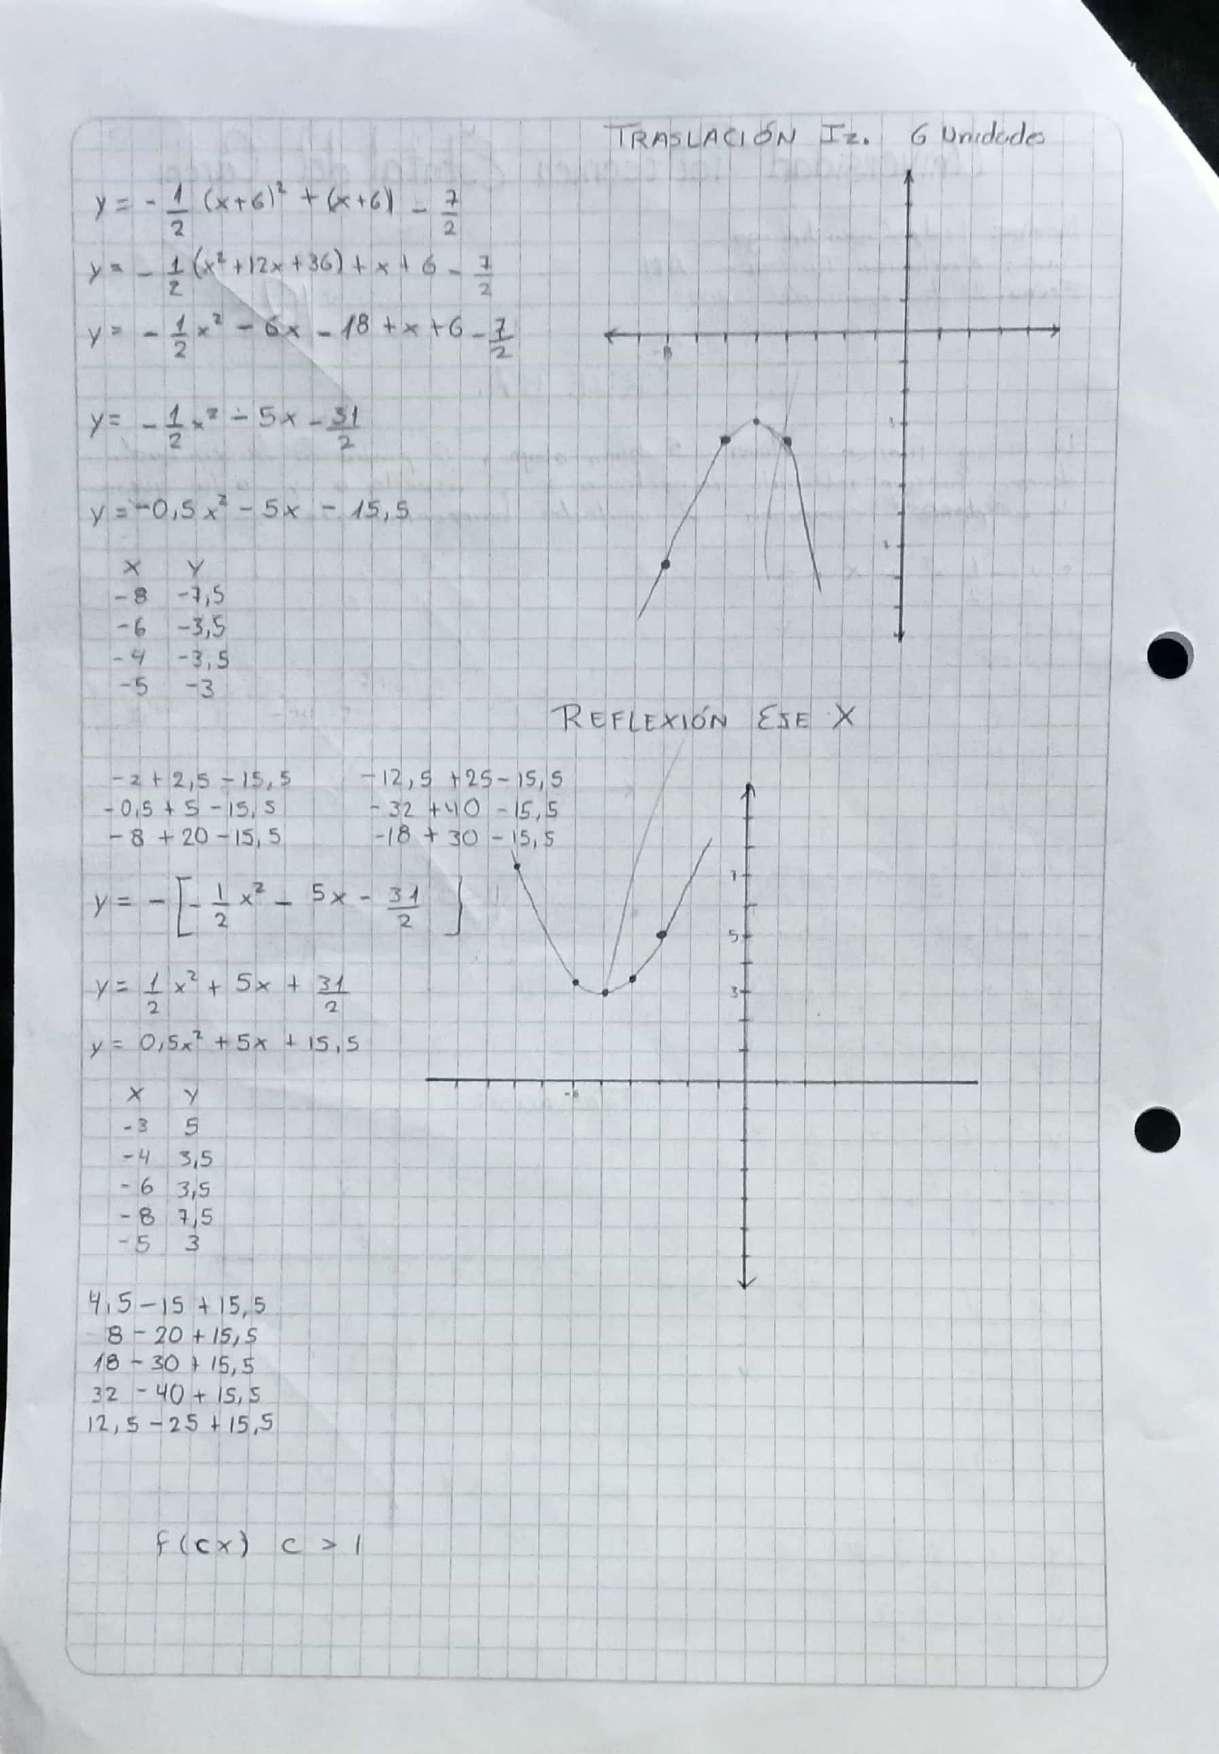 TRASLACIÓN Iz. 6 Unidades
y = - 1/2 (x+6)² + (x+6) - 7/2
y = - 1/2 (x²+12x+36) + x + 6 - 7/2
y = - 1/2 x² - 6x - 18 + x + 6 - 7/2
y = - 1/2 x² - 5x - 31/2
y = -0,5x² - 5x - 15,5
X Y
-8 -7,5
-6 -3,5
-4 -3,5
-5 -3
REFLEXIÓN EJE X
-2 + 2,5 - 15,5 -12,5 + 25 - 15,5
-0,5 + 5 - 15,5 -32 + 40 - 15,5
-8 + 20 - 15,5 -18 + 30 - 15,5
y = - [ - 1/2 x² - 5x - 31/2 ]
y = 1/2 x² + 5x + 31/2
y = 0,5x² + 5x + 15,5
7
5
3
X Y
-3 5
-4 3,5
-6 3,5
-8 7,5
-5 3
4,5 - 15 + 15,5
8 - 20 + 15,5
18 - 30 + 15,5
32 - 40 + 15,5
12,5 - 25 + 15,5
f(cx) c > 1